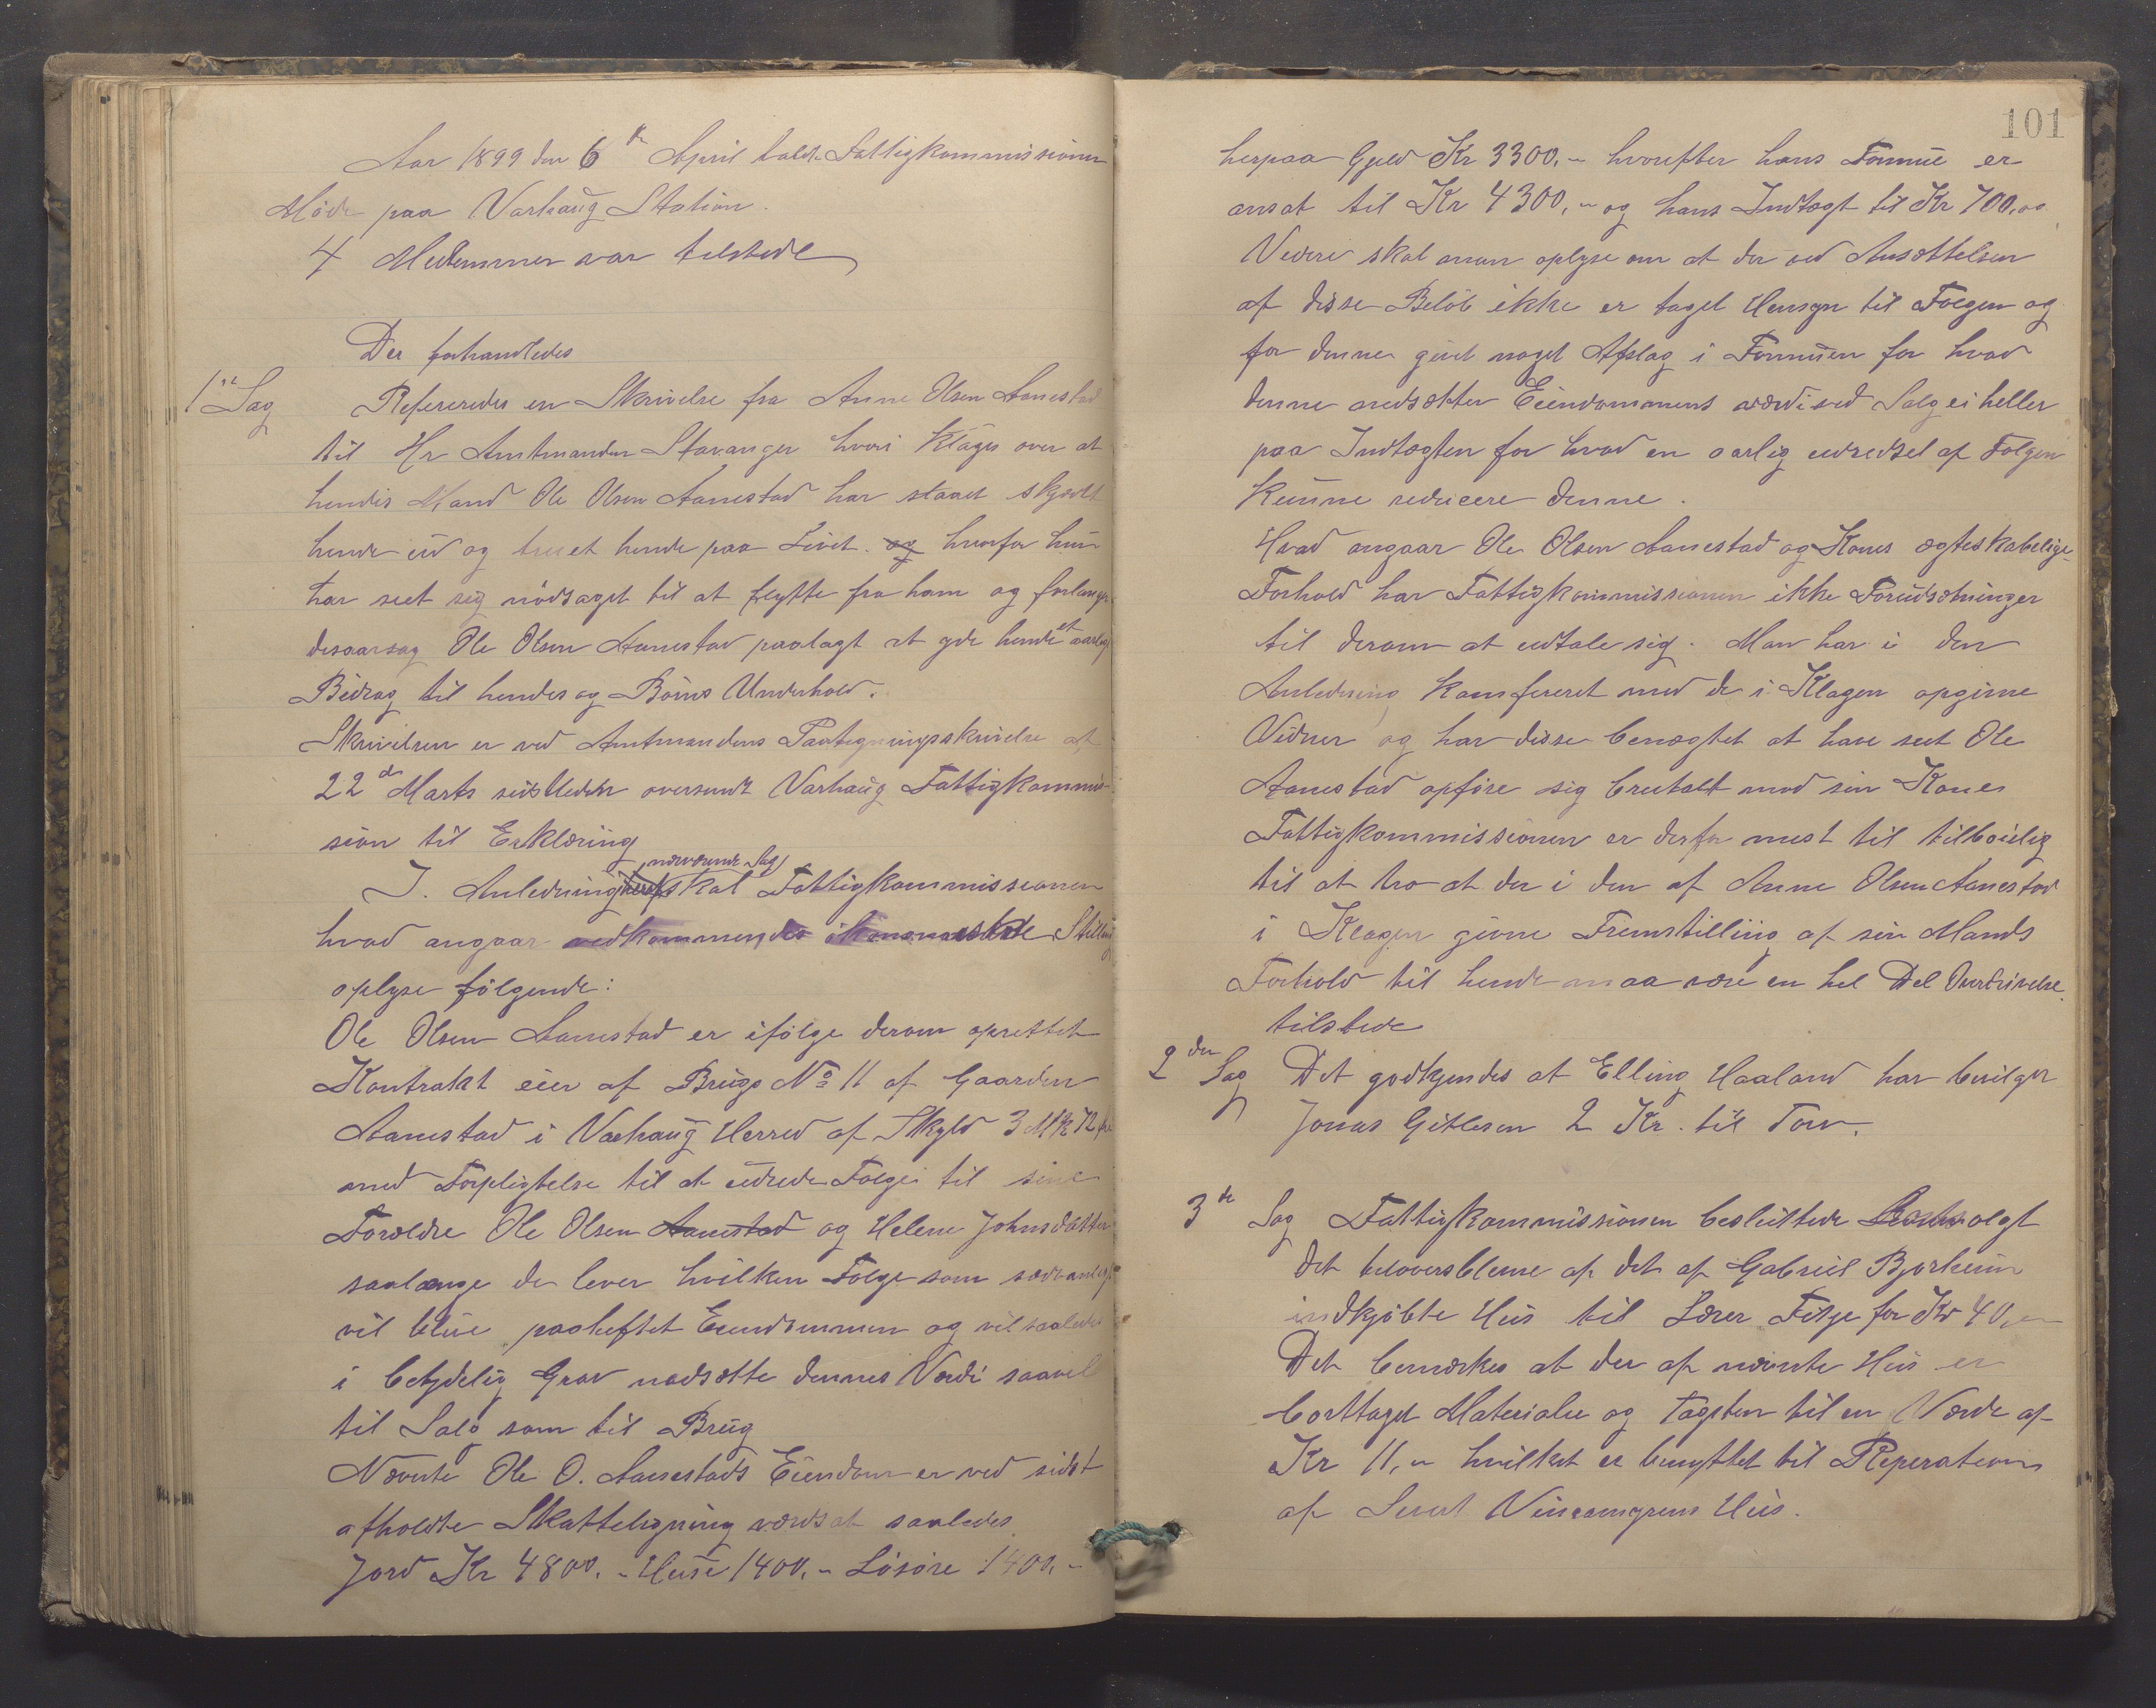 Aar 1899 den 6te April holdt Fattigkommissionen
Møde paa Varhaug Station.
4 Medlemmer var tilstede
Der forhandledes
1ste Sag Refereredes en Skrivelse fra Anne Olsen Aanestad
til Hr Amtmanden Stavanger hvori klages over at
hendes Mand Ole Olsen Aanestad har slaaet skjældt
hende ud og truet hende paa Livet. og hvorfor hun
har seet sig nødsaget til at flytte fra ham og forlanger
desaarsag Ole Olsen Aanestad paalagt at yde hende et aarligt
Bidrag til hendes og Børns Underhold.
Skrivelsen er ved Amtmandens Paategningsskrivelse af
22de Marts sidstleden oversendt Varhaug Fattigkommis-
sion til Erklæring
I Anledning nærværende Sag skal Fattigkommissionen
hvad angaar vedkommendes økonomiske Stilling
oplyse følgende:
Ole Olsen Aanestad er ifølge derom oprettet
Kontrakt eier af Brugs No 11 af Gaarden
Aanestad i Varhaug Herred af Skyld 3 Mk 72 øre
med Forpligtelse til at udrede Folge til sine
Forældre Ole Olsen Aanestad og Helene Johnsdatter
saalænge de lever hvilken Folge som sædvanligt
vil blive paaheftet Eiendommen og vil saaledes
i betydelig Grav nedsætte dennes Værdi saavel
til Salg som til Brug
Nævnte Ole O. Aanestads Eiendom er ved sidst
afholdte Skatteligning værdsat saaledes
Jord Kr 4800. " Huse 1400. " Løsøre 1400. "
101
herpaa Gjeld Kr 3300, " hvorefter hans Formue er
ansat til Kr 4300, " og hans Indtægt til Kr 700, oo
Videre skal man oplyse om at der ved Ansættelsen
af disse Beløb ikke er taget Hensyn til Folgen og
for denne givet noget Afslag i Formuen for hvad
denne nedsætter Eiendommens værdi ved Salg ei heller
paa Indtægten for hvad en aarlig udredsel af Folgen
kunne reducere denne.
Hvad angaar Ole Olsen Aanestad og Kones ægteskabelige
Forhold har Fattigkommissionen ikke Forudsætninger
til derom at udtale sig. Man har i den
Anledning konfereret med de i Klagen opgivne
Vidner og har disse benægtet at have seet Ole
Aanestad opføre sig brutalt mod sin Kone
Fattigkommissionen er derfor mest til tilbøielig
til at tro at der i den af Anne Olsen Aanestad
i Klagen givne Fremstilling af sin Mands
Forhold til hende maa være en hel Del Overdrivelse
tilstede
2den Sag Det godkjendes at Elling Haaland har bevilget
Jonas Gitlesen 2 Kr. til Torv.
3de Sag Fattigkommissionen besluttede solgt
det tiloversblevne af det af Gabriel Bjorheim
indkjøbte Hus til Lærer Filge for Kr 40, "
Det bemærkes at der af nævnte Hus er
borttaget Materialer og tagsten til en Værdi af
Kr 11, " hvilket er benyttet til Reperation
af Sivert Hus.